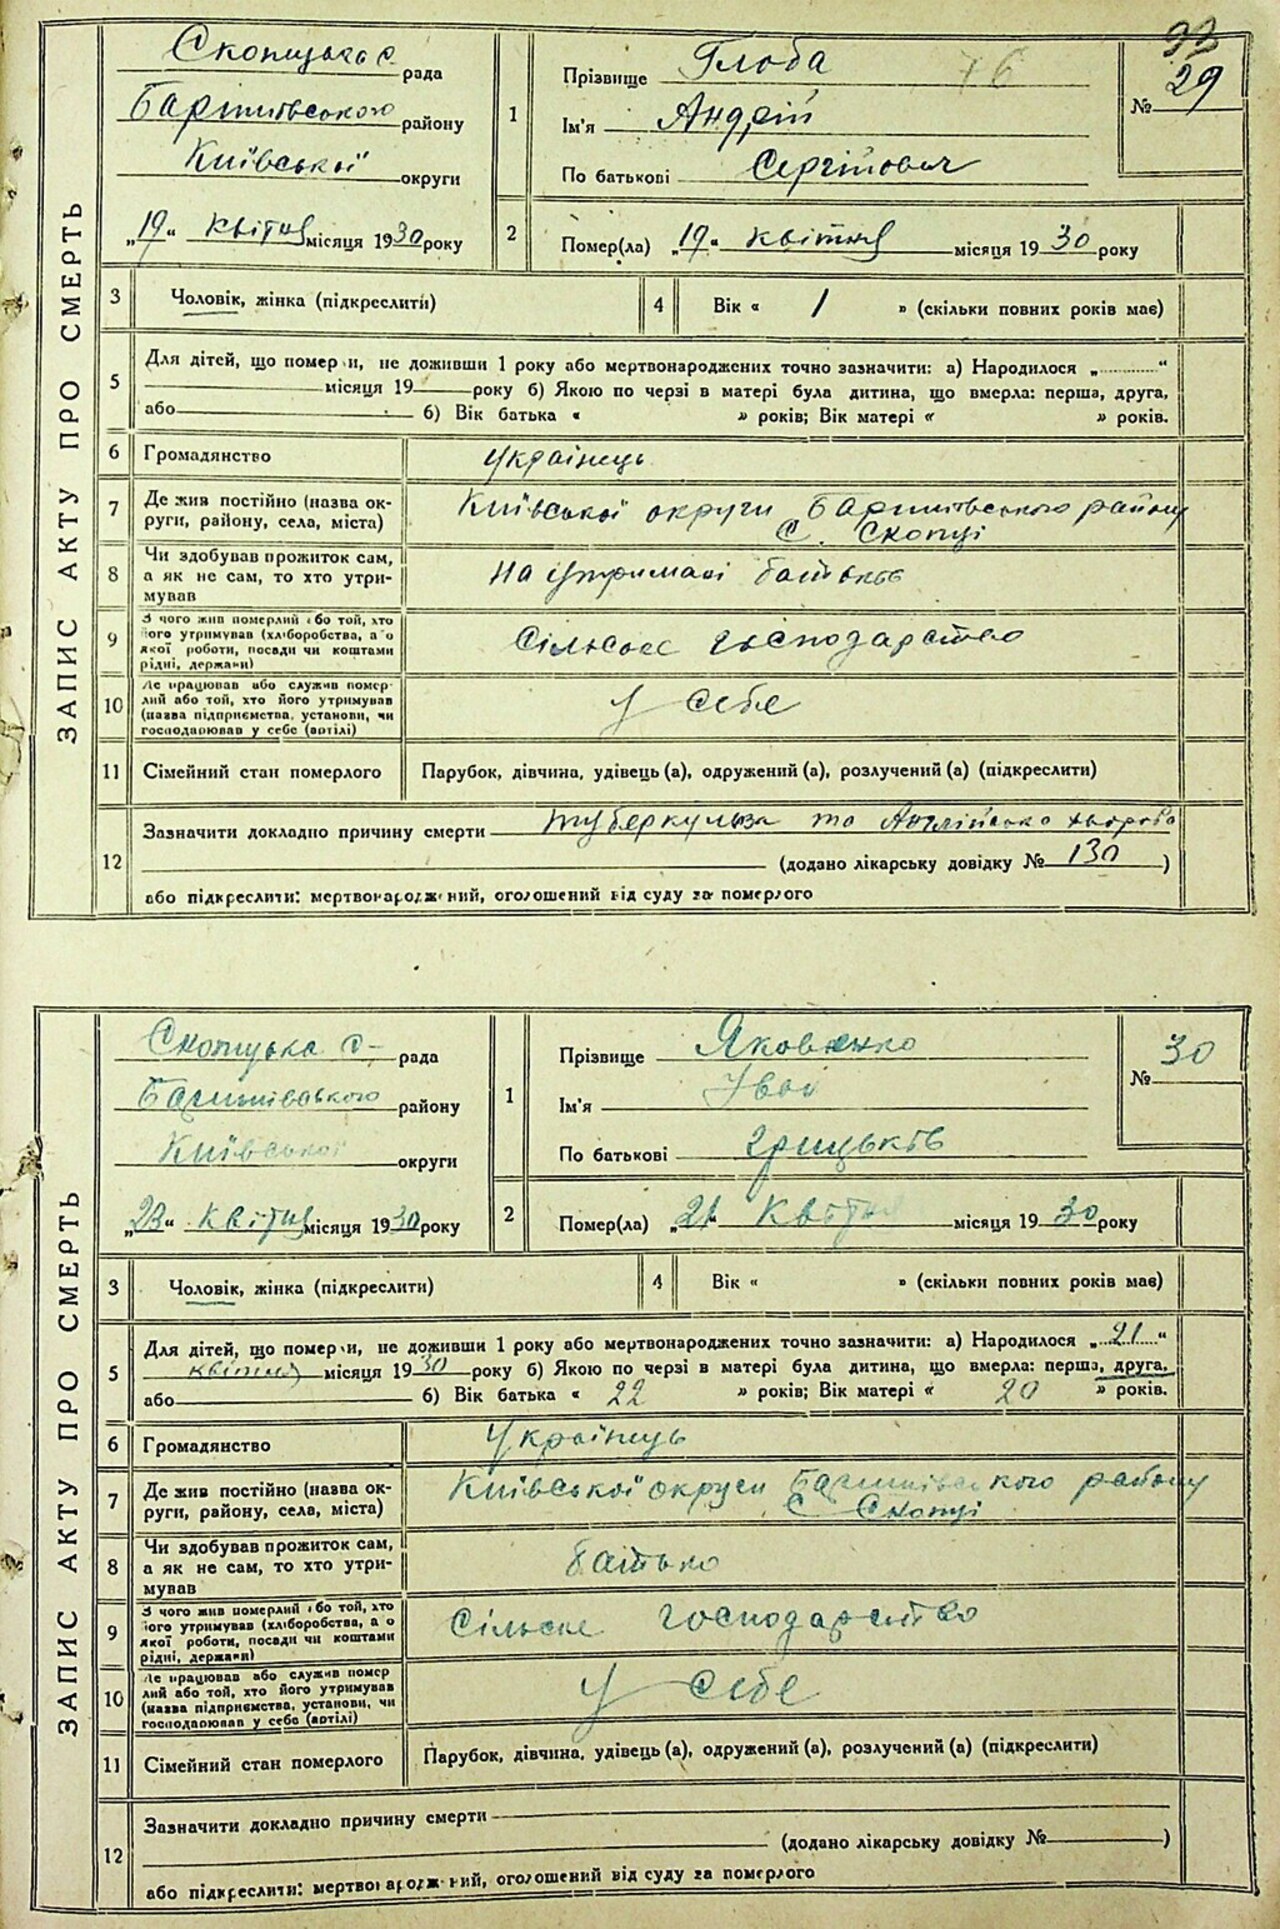 93
Скопцька с. рада
Баришівського району
Київської округи
„19“ квітня місяця 1930 року
1
Прізвище Глоба 76
Ім'я Андрій
По батькові Сергійович
№ 29
2
Помер(ла) „19“ квітня місяця 1930 року
ЗАПИС АКТУ ПРО СМЕРТЬ
3 Чоловік, жінка (підкреслити)
4 Вік « 1 » (скільки повних років має)
5
Для дітей, що померли, не доживши 1 року або мертвонароджених точно зазначити: а) Народилося „ “
місяця 19 року б) Якою по черзі в матері була дитина, що вмерла: перша, друга,
або б) Вік батька « » років; Вік матері « » років.
6 Громадянство українець
7 Де жив постійно (назва ок-
руги, району, села, міста)
Київської округи Баришівського району
с. Скопці
8 Чи здобував прожиток сам,
а як не сам, то хто утри-
мував
на утримані батьків
9 З чого жив померлий або той, хто
його утримував (хліборобства, а о
якої роботи, посади чи коштами
рідні, держави)
Сільське господарство
10 Де працював або служив помер-
лий або той, хто його утримував
(назва підприємства, установи, чи
господарював у себе (артілі)
у себе
11 Сімейний стан померлого Парубок, дівчина, удівець (а), одружений (а), розлучений (а) (підкреслити)
12
Зазначити докладно причину смерти туберкульоз та Англійська хвороба
(додано лікарську довідку № 130 )
або підкреслити: мертвонароджений, оголошений від суду за померлого
Скопцька с- рада
Баришівського району
Київської округи
„23“ квітня місяця 1930 року
1
Прізвище Яковенко
Ім'я Іван
По батькові Грицьків
№ 30
2
Помер(ла) „21“ квітня місяця 1930 року
ЗАПИС АКТУ ПРО СМЕРТЬ
3 Чоловік, жінка (підкреслити)
4 Вік « » (скільки повних років має)
5
Для дітей, що померли, не доживши 1 року або мертвонароджених точно зазначити: а) Народилося „21“
квітня місяця 1930 року б) Якою по черзі в матері була дитина, що вмерла: перша, друга,
або б) Вік батька « 22 » років; Вік матері « 20 » років.
6 Громадянство Українець
7 Де жив постійно (назва ок-
руги, району, села, міста)
Київської округи Баришівського району
с Скопці
8 Чи здобував прожиток сам,
а як не сам, то хто утри-
мував
батько
9 З чого жив померлий або той, хто
його утримував (хліборобства, а о
якої роботи, посади чи коштами
рідні, держави)
Сільске господарство
10 Де працював або служив помер
лий або той, хто його утримував
(назва підприємства, установи, чи
господарював у себе (артілі)
у себе
11 Сімейний стан померлого Парубок, дівчина, удівець (а), одружений (а), розлучений (а) (підкреслити)
12
Зазначити докладно причину смерти
(додано лікарську довідку № )
або підкреслити: мертвонароджений, оголошений від суду за померлого